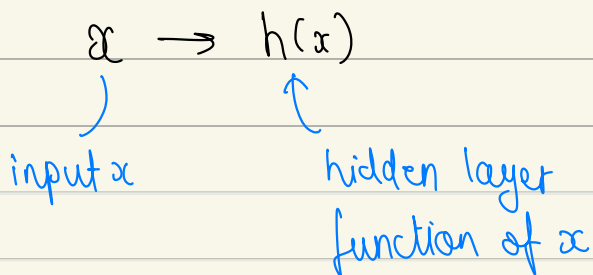 x → h(x)
input x
hidden layer
function of x